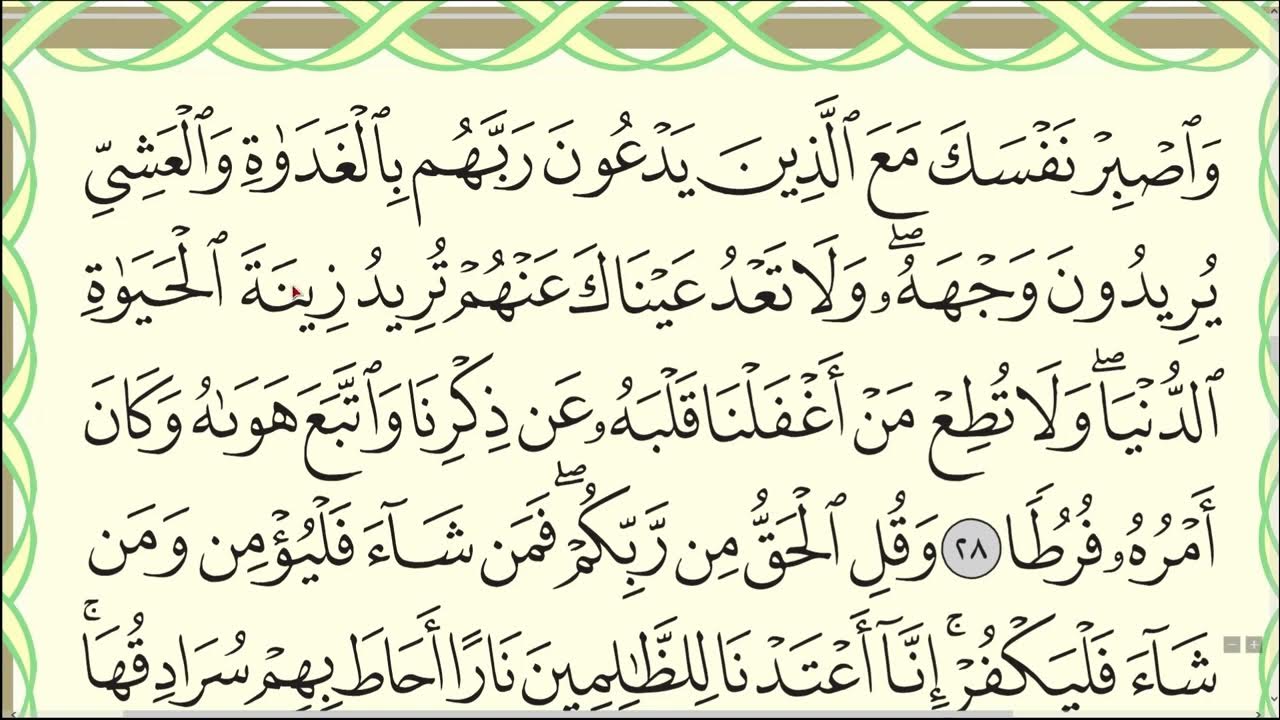 وَٱصۡبِرۡ نَفۡسَكَ مَعَ ٱلَّذِينَ يَدۡعُونَ رَبَّهُم بِٱلۡغَدَوٰةِ وَٱلۡعَشِيِّ
يُرِيدُونَ وَجۡهَهُۥۖ وَلَا تَعۡدُ عَيۡنَاكَ عَنۡهُمۡ تُرِيدُ زِينَةَ ٱلۡحَيَوٰةِ
ٱلدُّنۡيَاۖ وَلَا تُطِعۡ مَنۡ أَغۡفَلۡنَا قَلۡبَهُۥ عَن ذِكۡرِنَا وَٱتَّبَعَ هَوَىٰهُ وَكَانَ
أَمۡرُهُۥ فُرُطٗا ٢٨ وَقُلِ ٱلۡحَقُّ مِن رَّبِّكُمۡۖ فَمَن شَآءَ فَلۡيُؤۡمِن وَمَن
شَآءَ فَلۡيَكۡفُرۡۚ إِنَّآ أَعۡتَدۡنَا لِلظَّٰلِمِينَ نَارًا أَحَاطَ بِهِمۡ سُرَادِقُهَاۚ